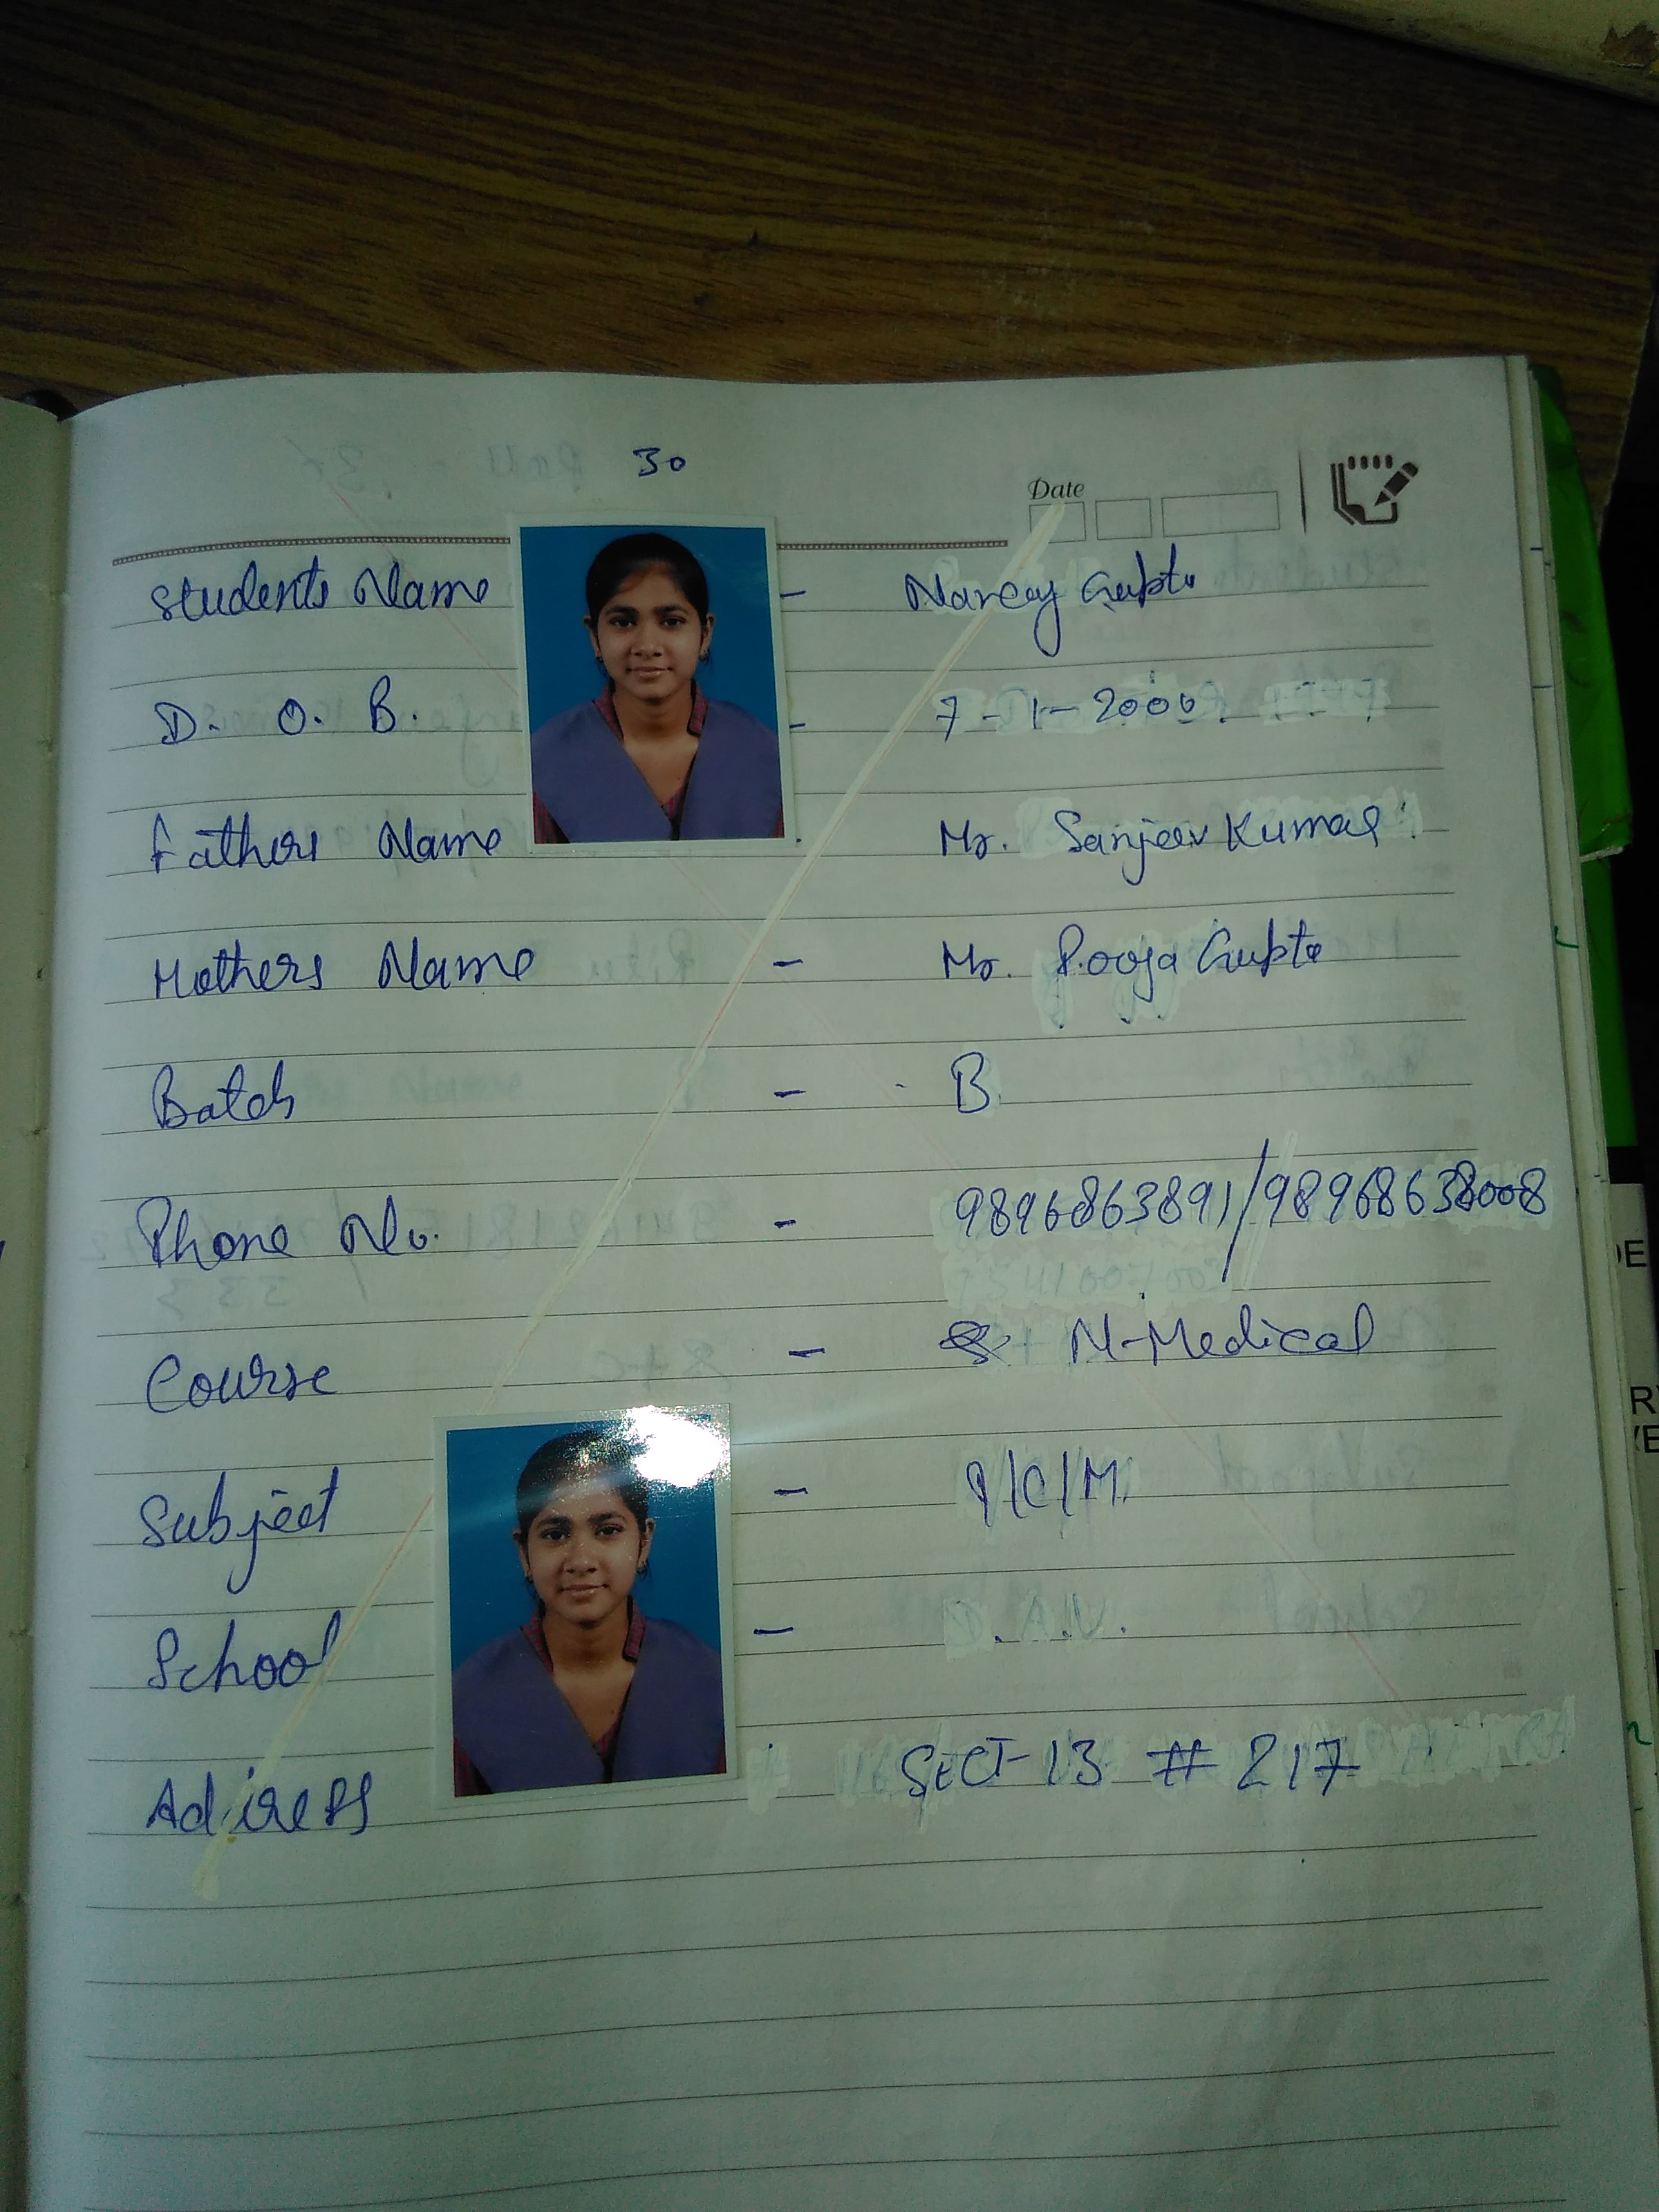 30
Date
Students Name - Gupta
D. O. B. - 7-1-2000.
Fathers Name - Mr. Sanjeev Kumar
Mothers Name - Mr. Pooja Gupta
Batch - B
Phone No. - 9896863891/98968638008
Course - N-Medical
Subject - P/C/M.
School - D.A.V.
Adiress SECT-13 # 217